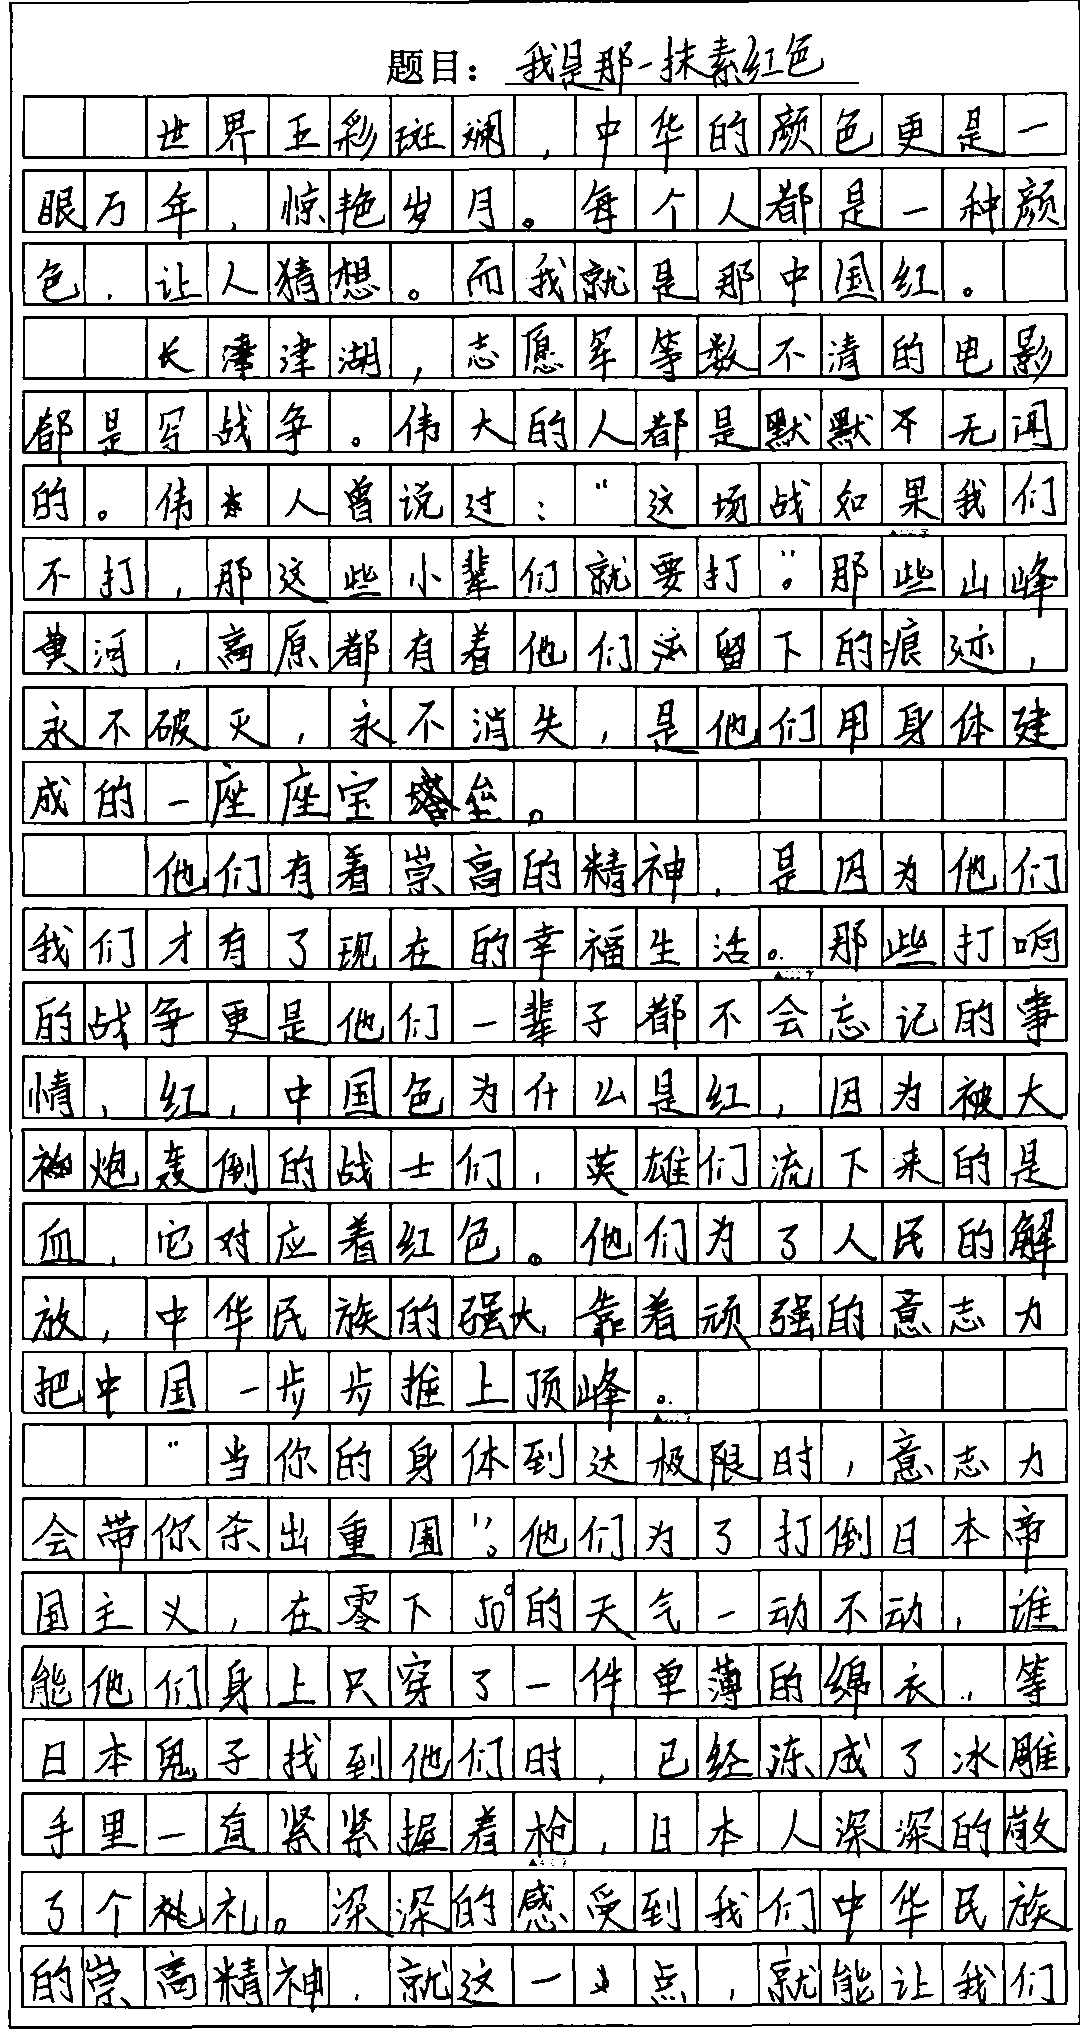 题目：我是那一抹素红色
世界五彩斑斓，中华的颜色更是一
眼万年，惊艳岁月。每个人都是一种颜
色，让人猜想。而我就是那中国红。
长津湖，志愿军等数不清的电影
都是写战争。伟大的人都是默默不无闻
的。伟人曾说过：“这场战如果我们
不打，那这些小辈们就要打”。那些山峰
黄河，高原都有着他们留下的痕迹，
永不破灭，永不消失，是他们用身体建
成的一座座宝垒。
他们有着崇高的精神，是因为他们
我们才有了现在的幸福生活。那些打响
的战争更是他们一辈子都不会忘记的事
情，红，中国色为什么是红，因为被大
炮轰倒的战士们，英雄们流下来的是
血，它对应着红色。他们为了人民的解
放，中华民族的强大，靠着顽强的意志力
把中国一步步推上顶峰。
“当你的身体到达极限时，意志力
会带你杀出重围”。他们为了打倒日本帝
国主义，在零下50°的天气一动不动，谁
能他们身上只穿了一件单薄的绵衣，等
日本鬼子找到他们时，已经冻成了冰雕
手里一直紧紧握着枪，日本人深深的敬
了个礼。深深的感受到我们中华民族
的崇高精神，就这一点，就能让我们